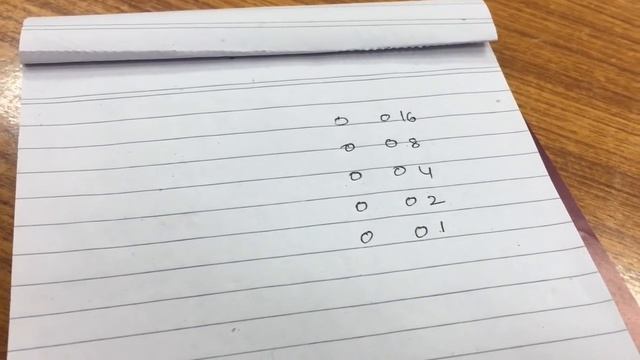 0 0 16
0 0 8
0 0 4
0 0 2
0 0 1